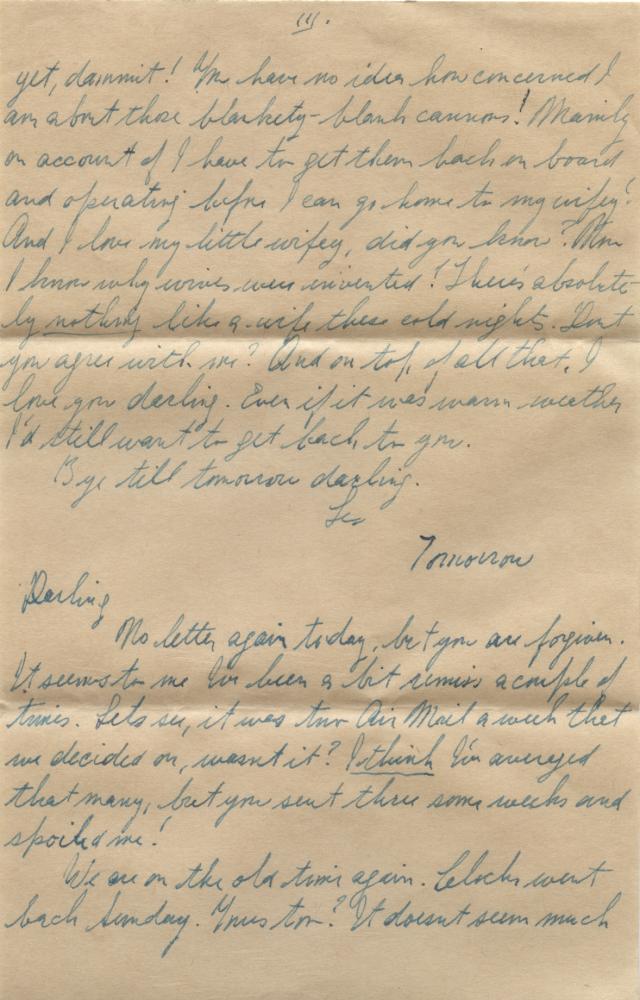 III.
yet, dammit! You have no idea how concerned I
am about those blankety-blank cannons! Mainly
on account of I have to get them back on board
and operating before I can go home to my wifey!
And I love my little wifey, did you know? Mm
I know why wives were invented! There's absolute-
ly nothing like a wife these cold nights. Don't
you agree with me? And on top of all that, I
love you darling. Even if it was warm weather
I'd still want to get back to you.
Bye till tomorrow darling.
Les
Tomorrow
Darling
No letter again today, but you are forgiven.
It seems to me I've been a bit remiss a couple of
times. Lets see, it was two Air Mail a week that
we decided on, wasn't it? I think I've averaged
that many, but you sent three some weeks and
spoiled me!
We are on the old time again. Clocks went
back Sunday. Yours too? It doesnt seem much